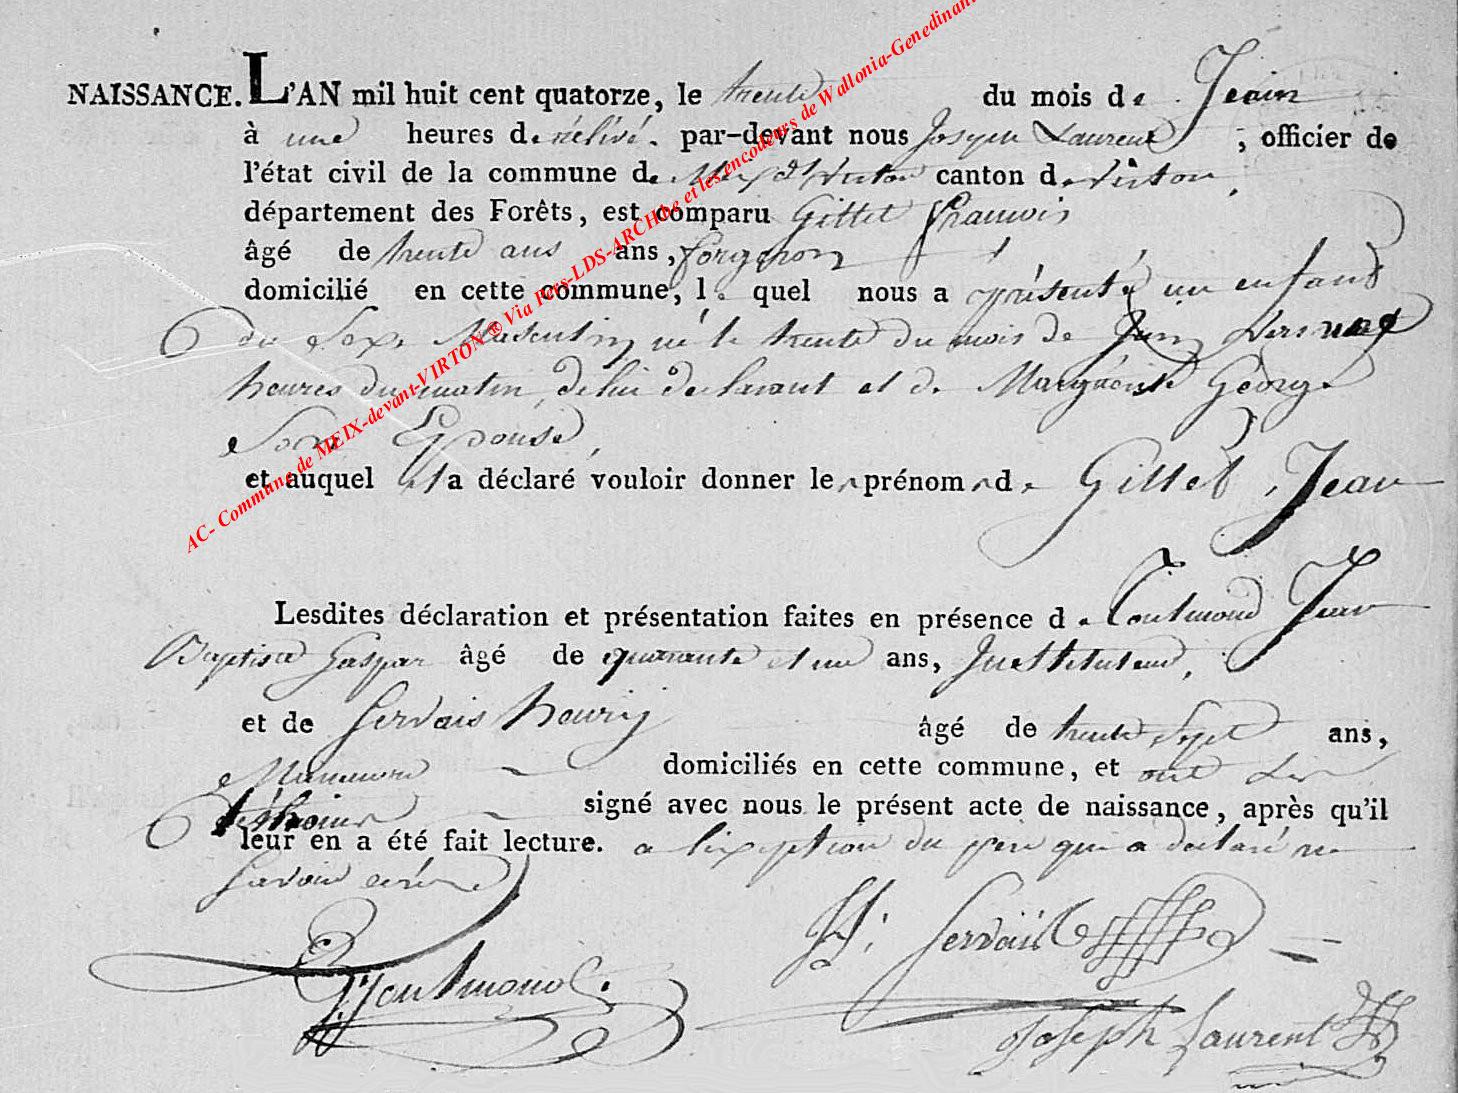 NAISSANCE. L'AN mil huit cent quatorze, le trente du mois de Jeuin
à une heures de rélévé. par-devant nous Joseph Laurent, officier de
l'état civil de la commune de Meix dt Virton canton de Virton,
département des Forêts, est comparu Gillet François
âgé de trente ans ans, forgeron
domicilié en cette commune, le quel nous a présenté un enfant
du Sexe Masculin né le trente du mois de Juin vers une
heures du matin, de lui declarant et de Marguerite George
Son Epouse,
et auquel il a déclaré vouloir donner le prénom de Gillet, Jean
Lesdites déclaration et présentation faites en présence de Toutmond Jean
Baptiste Gaspar âgé de quarante et un ans, Instituteur,
et de Servais henry âgé de trente Sept ans,
domiciliés en cette commune, et ont Les
témoins signé avec nous le présent acte de naissance, après qu'il
leur en a été fait lecture. a l'exeption du pere qui a declaré ne
Savoir ecrire
H: Servais
Toutmond.
Joseph Laurent
AC- Commune de MEIX-devant-VIRTON ® Via Pers-LDS-ARCH.be et les encodeurs de Wallonia-Genedinant